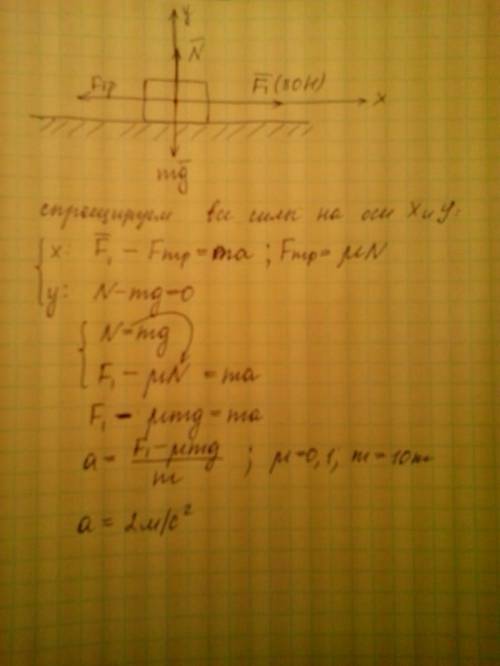 y
N̅
Fтр F̅₁(30H) x
mg̅
спроецируем все силы на оси X и Y:
x: F̅₁ - Fтр = ma ; Fтр = μN
y: N - mg = 0
N = mg
F₁ - μN = ma
F₁ - μmg = ma
a = (F₁ - μmg)/m ; μ = 0,1; m = 10
a = 2м/с²